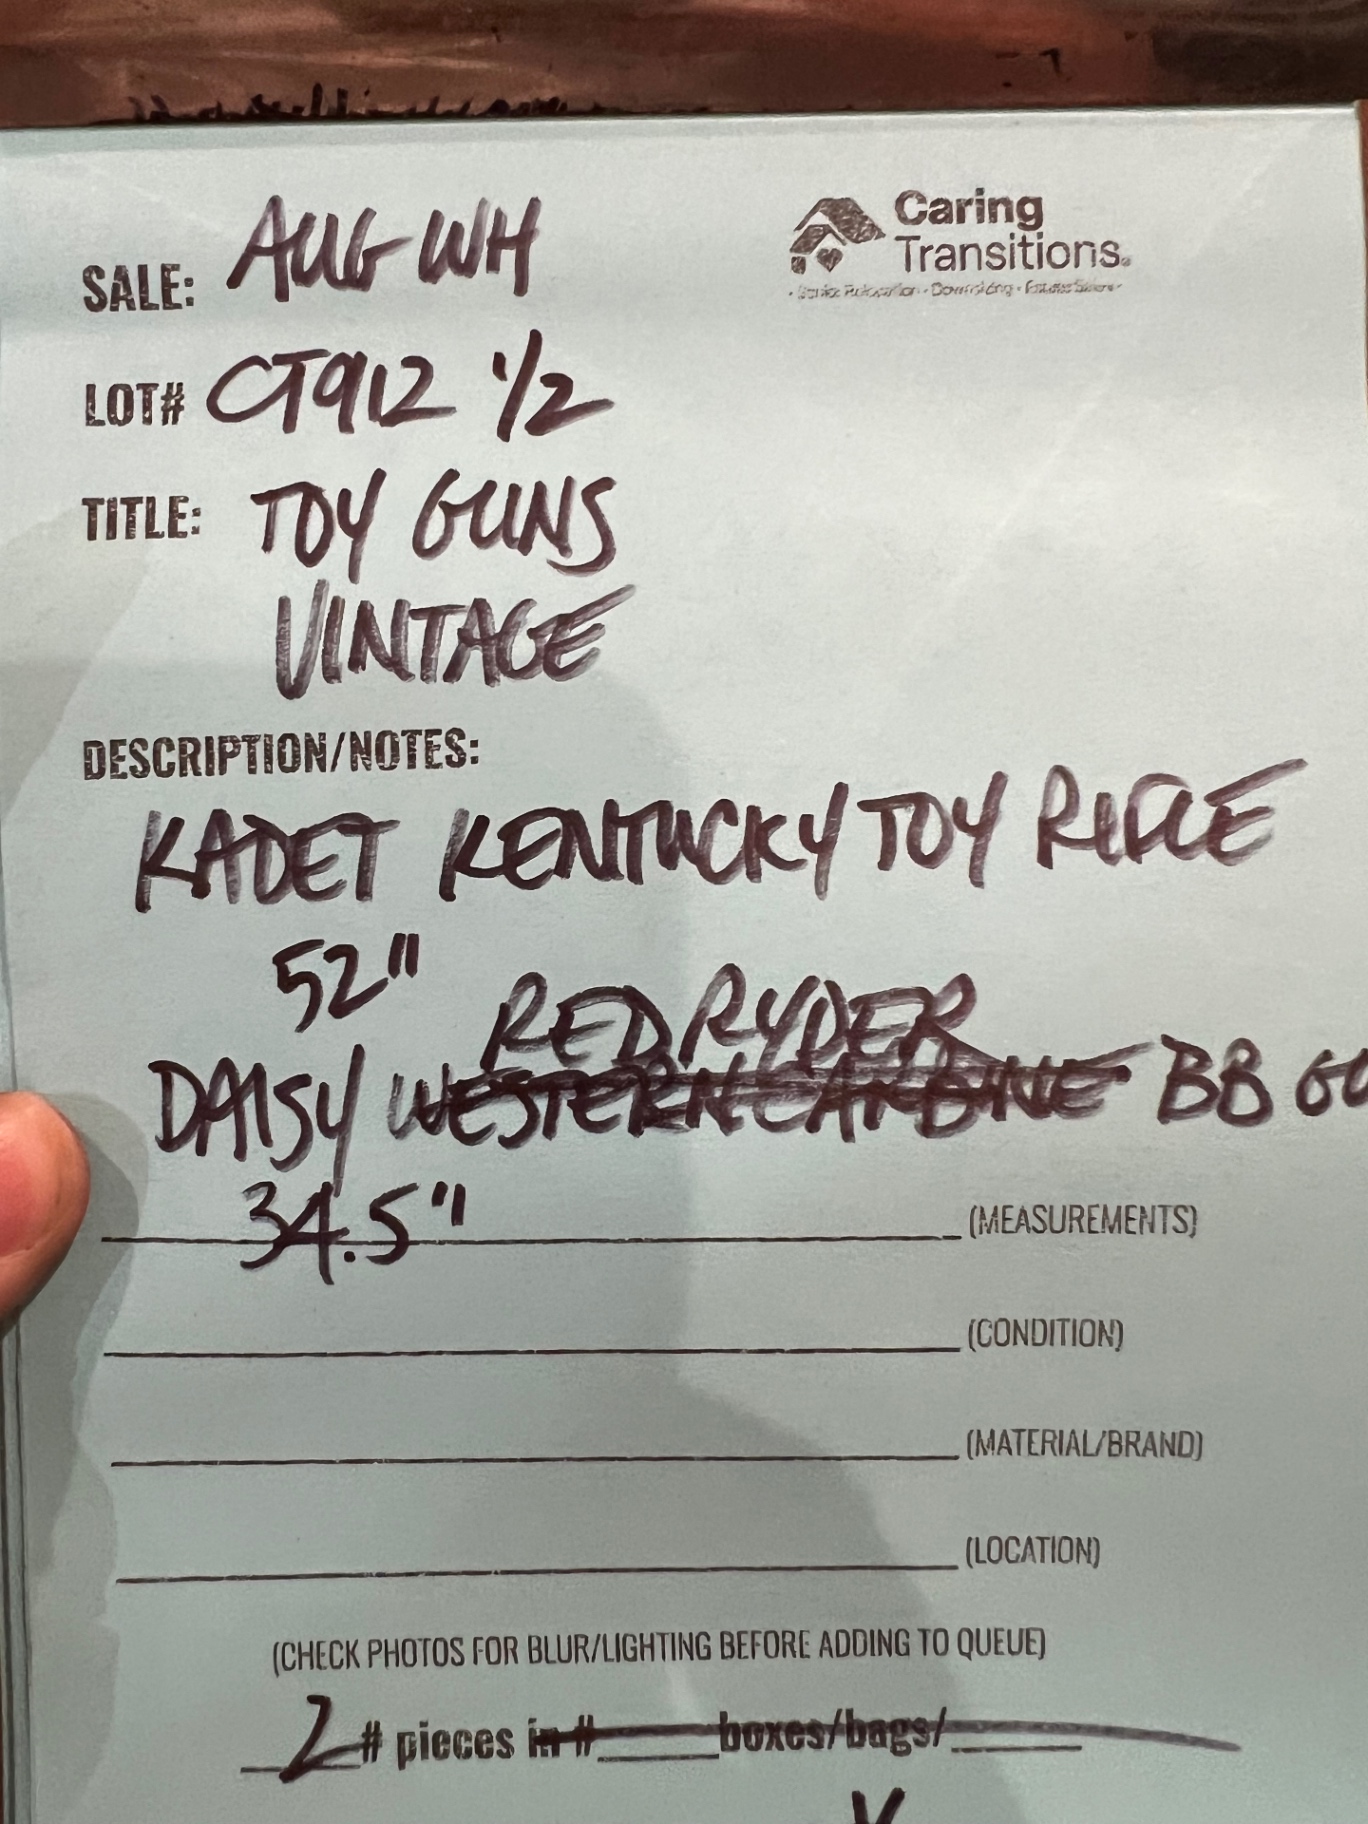 Caring
Transitions.
SALE: AUG WH
LOT# CT912 1/2
TITLE: TOY GUNS
VINTAGE
DESCRIPTION/NOTES:
KADET KENTUCKY TOY RIFLE
52"
RED RYDER
DAISY WESTERN CARBINE BB GU
34.5" (MEASUREMENTS)
(CONDITION)
(MATERIAL/BRAND)
(LOCATION)
(CHECK PHOTOS FOR BLUR/LIGHTING BEFORE ADDING TO QUEUE)
2 # pieces in # boxes/bags/